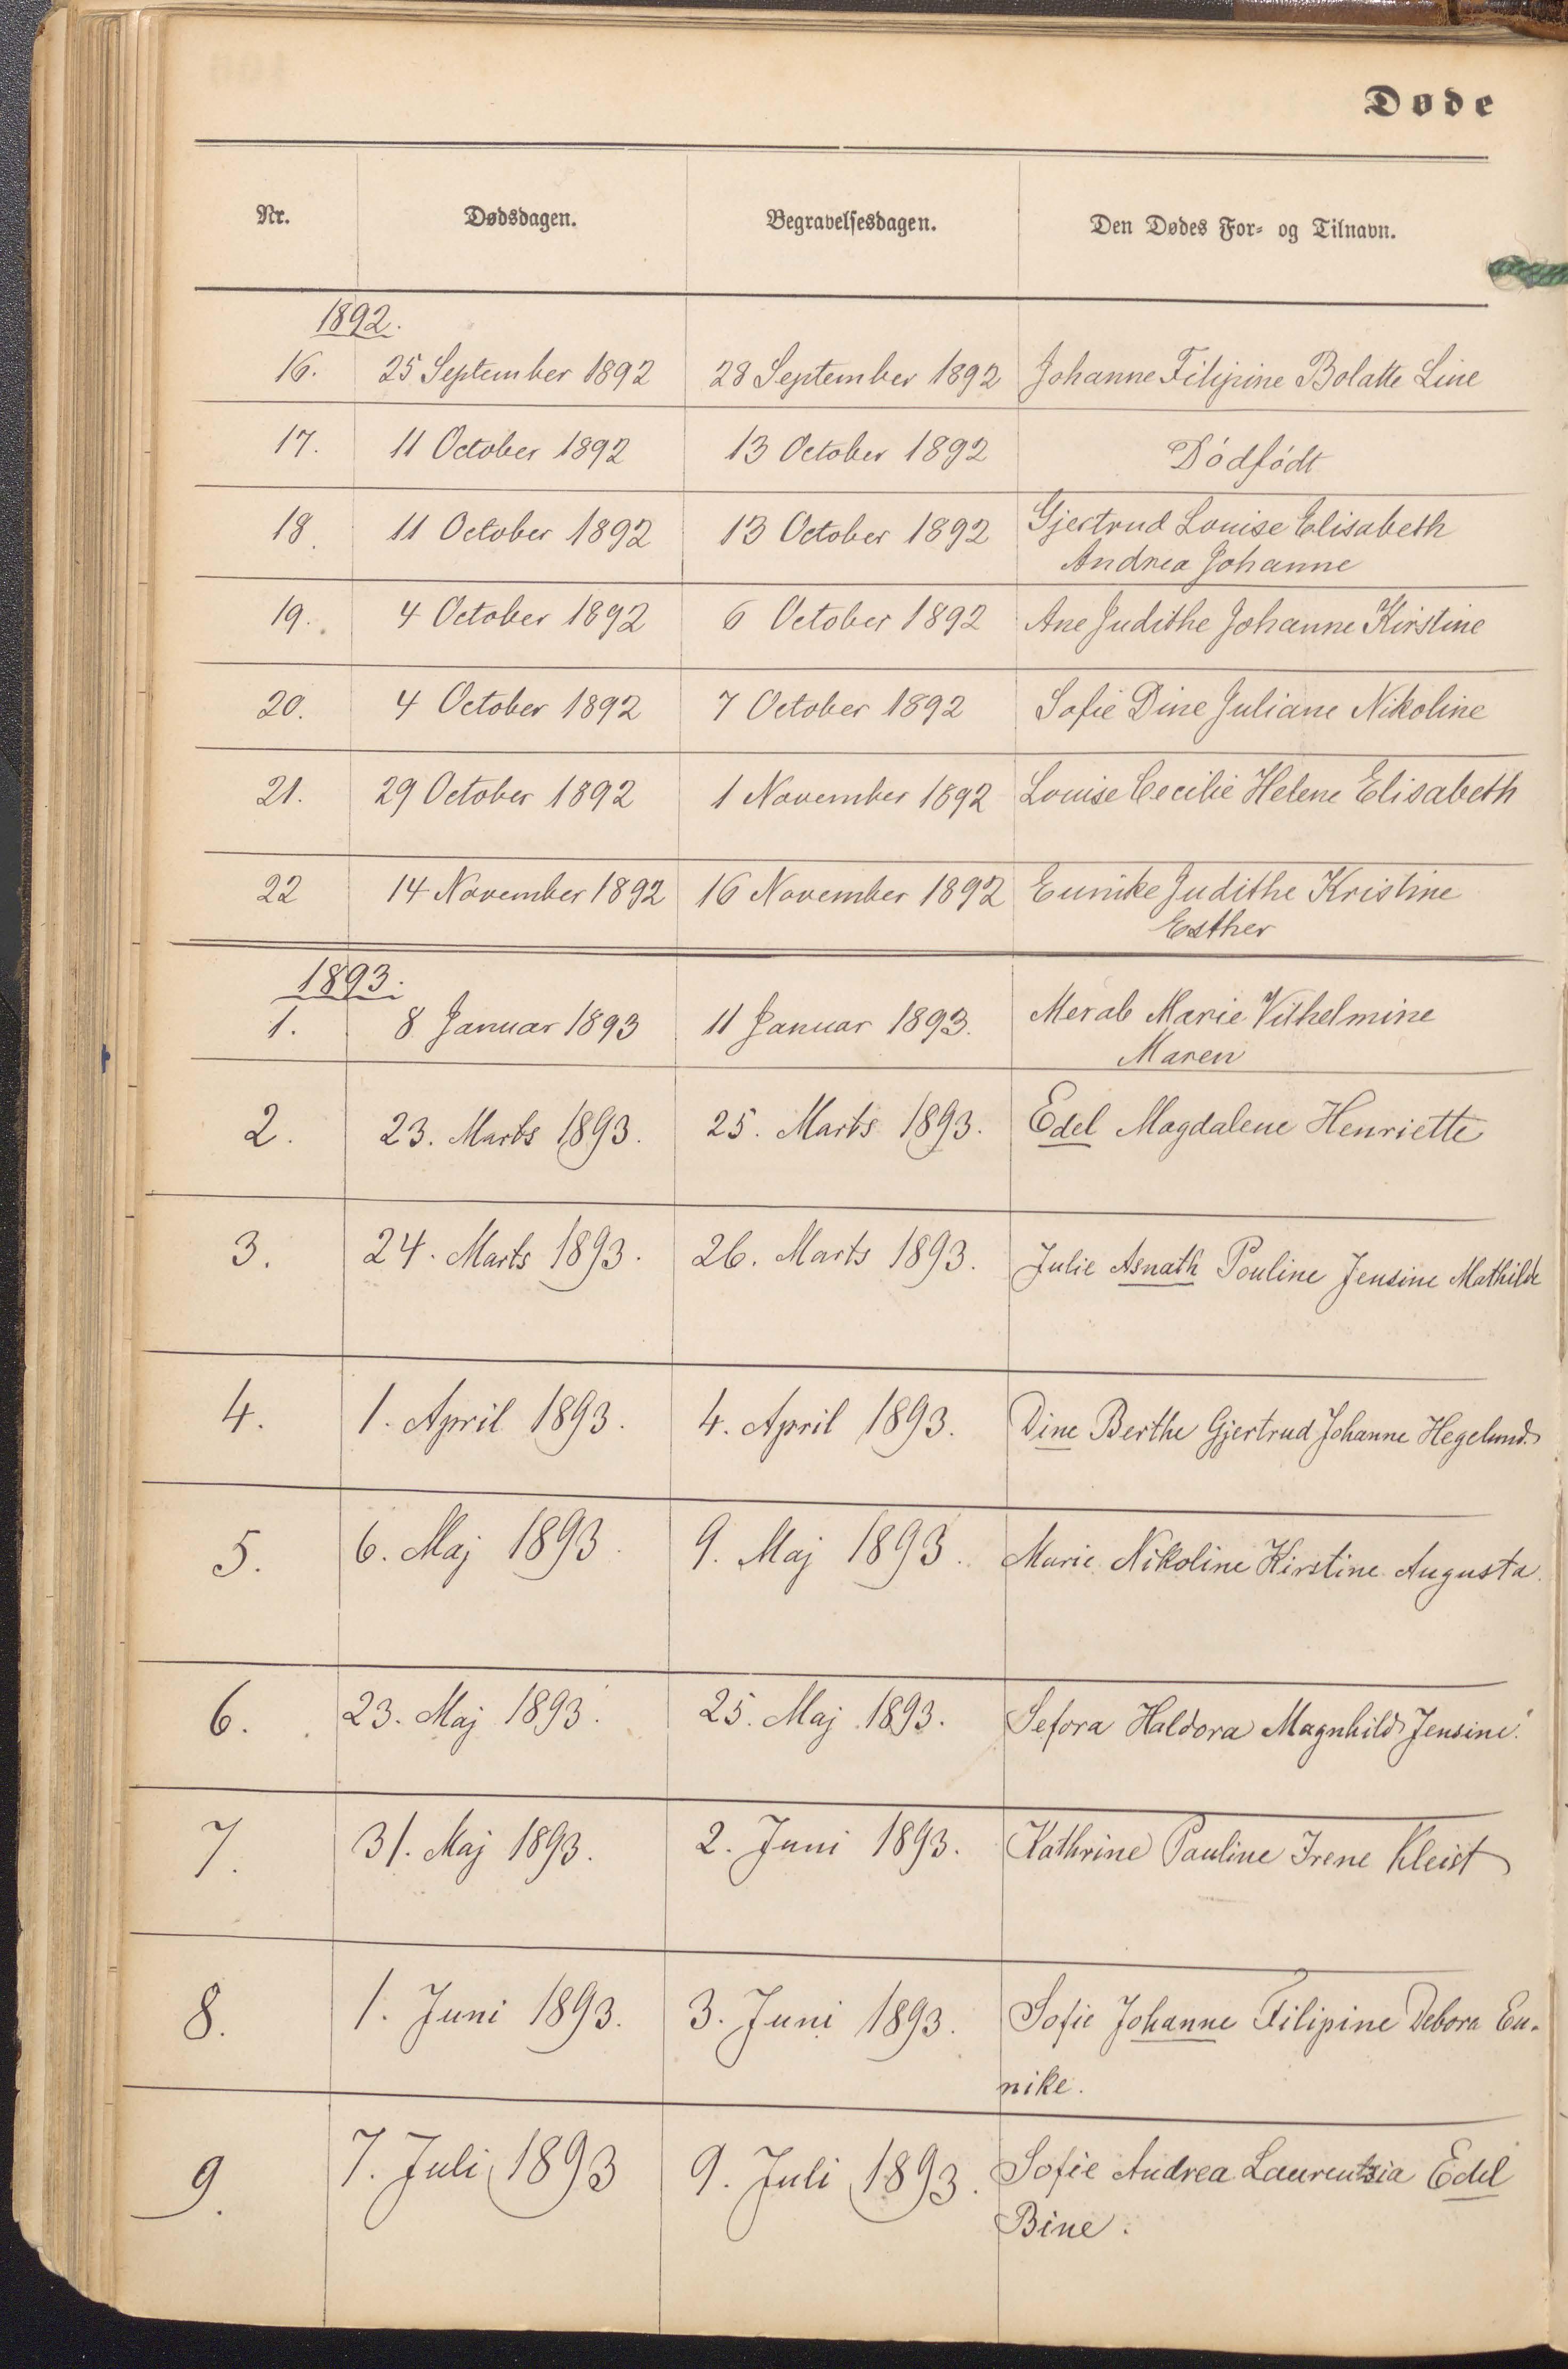 Døde
Nr. Dødsdagen. Begravelsesdagen. Den Dødes For- og Tilnavn.
1892.
16. 25 September 1892 28 September 1892 Johanne Filipine Bolatte Line
17. 11 October 1892 13 October 1892 Dódfódt
18. 11 October 1892 13 October 1892 Gjertrud Louise Elisabeth
Andrea Johanne
19. 4 October 1892 6 October 1892 Ane Judithe Johanne Kirstine
20. 4 October 1892 7 October 1892 Sofie Dine Juliane Nikoline
21. 29 October 1892 1 November 1892 Louise Cecilie Helene Elisabeth
22 14 November 1892 16 November 1892 Eunike Judithe Kristine
Esther
1893.
1. 8 Januar 1893 11 Januar 1893. Merab Marie Vilhelmine
Maren
2. 23. Marts 1893. 25. Marts 1893. Edel Magdalene Henriette
3. 24. Marts 1893. 26. Marts 1893. Julie Asnath Pouline Jensine Mathilde
4. 1. April 1893. 4. April 1893. Dine Berthe Gjertrud Johanne Hegelund.
5. 6. Maj 1893. 9. Maj 1893. Marie Nikoline Kirstine Augusta.
6. 23. Maj 1893. 25. Maj 1893. Sefora Haldora Magnhild Jensine.
7. 31. Maj 1893. 2. Juni 1893. Kathrine Pauline Irene Kleist
8. 1. Juni 1893. 3. Juni 1893. Sofie Johanne Filipine Debora Eu-
nike.
9. 7. Juli 1893 9. Juli 1893. Sofie Andrea Laurentzia Edel
Bine.